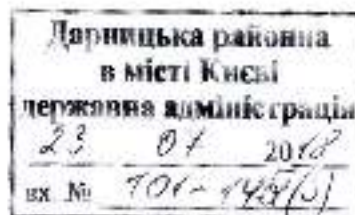 Дарницька районна
в місті Києві
державна адміністрація
23 01 2018
вх №